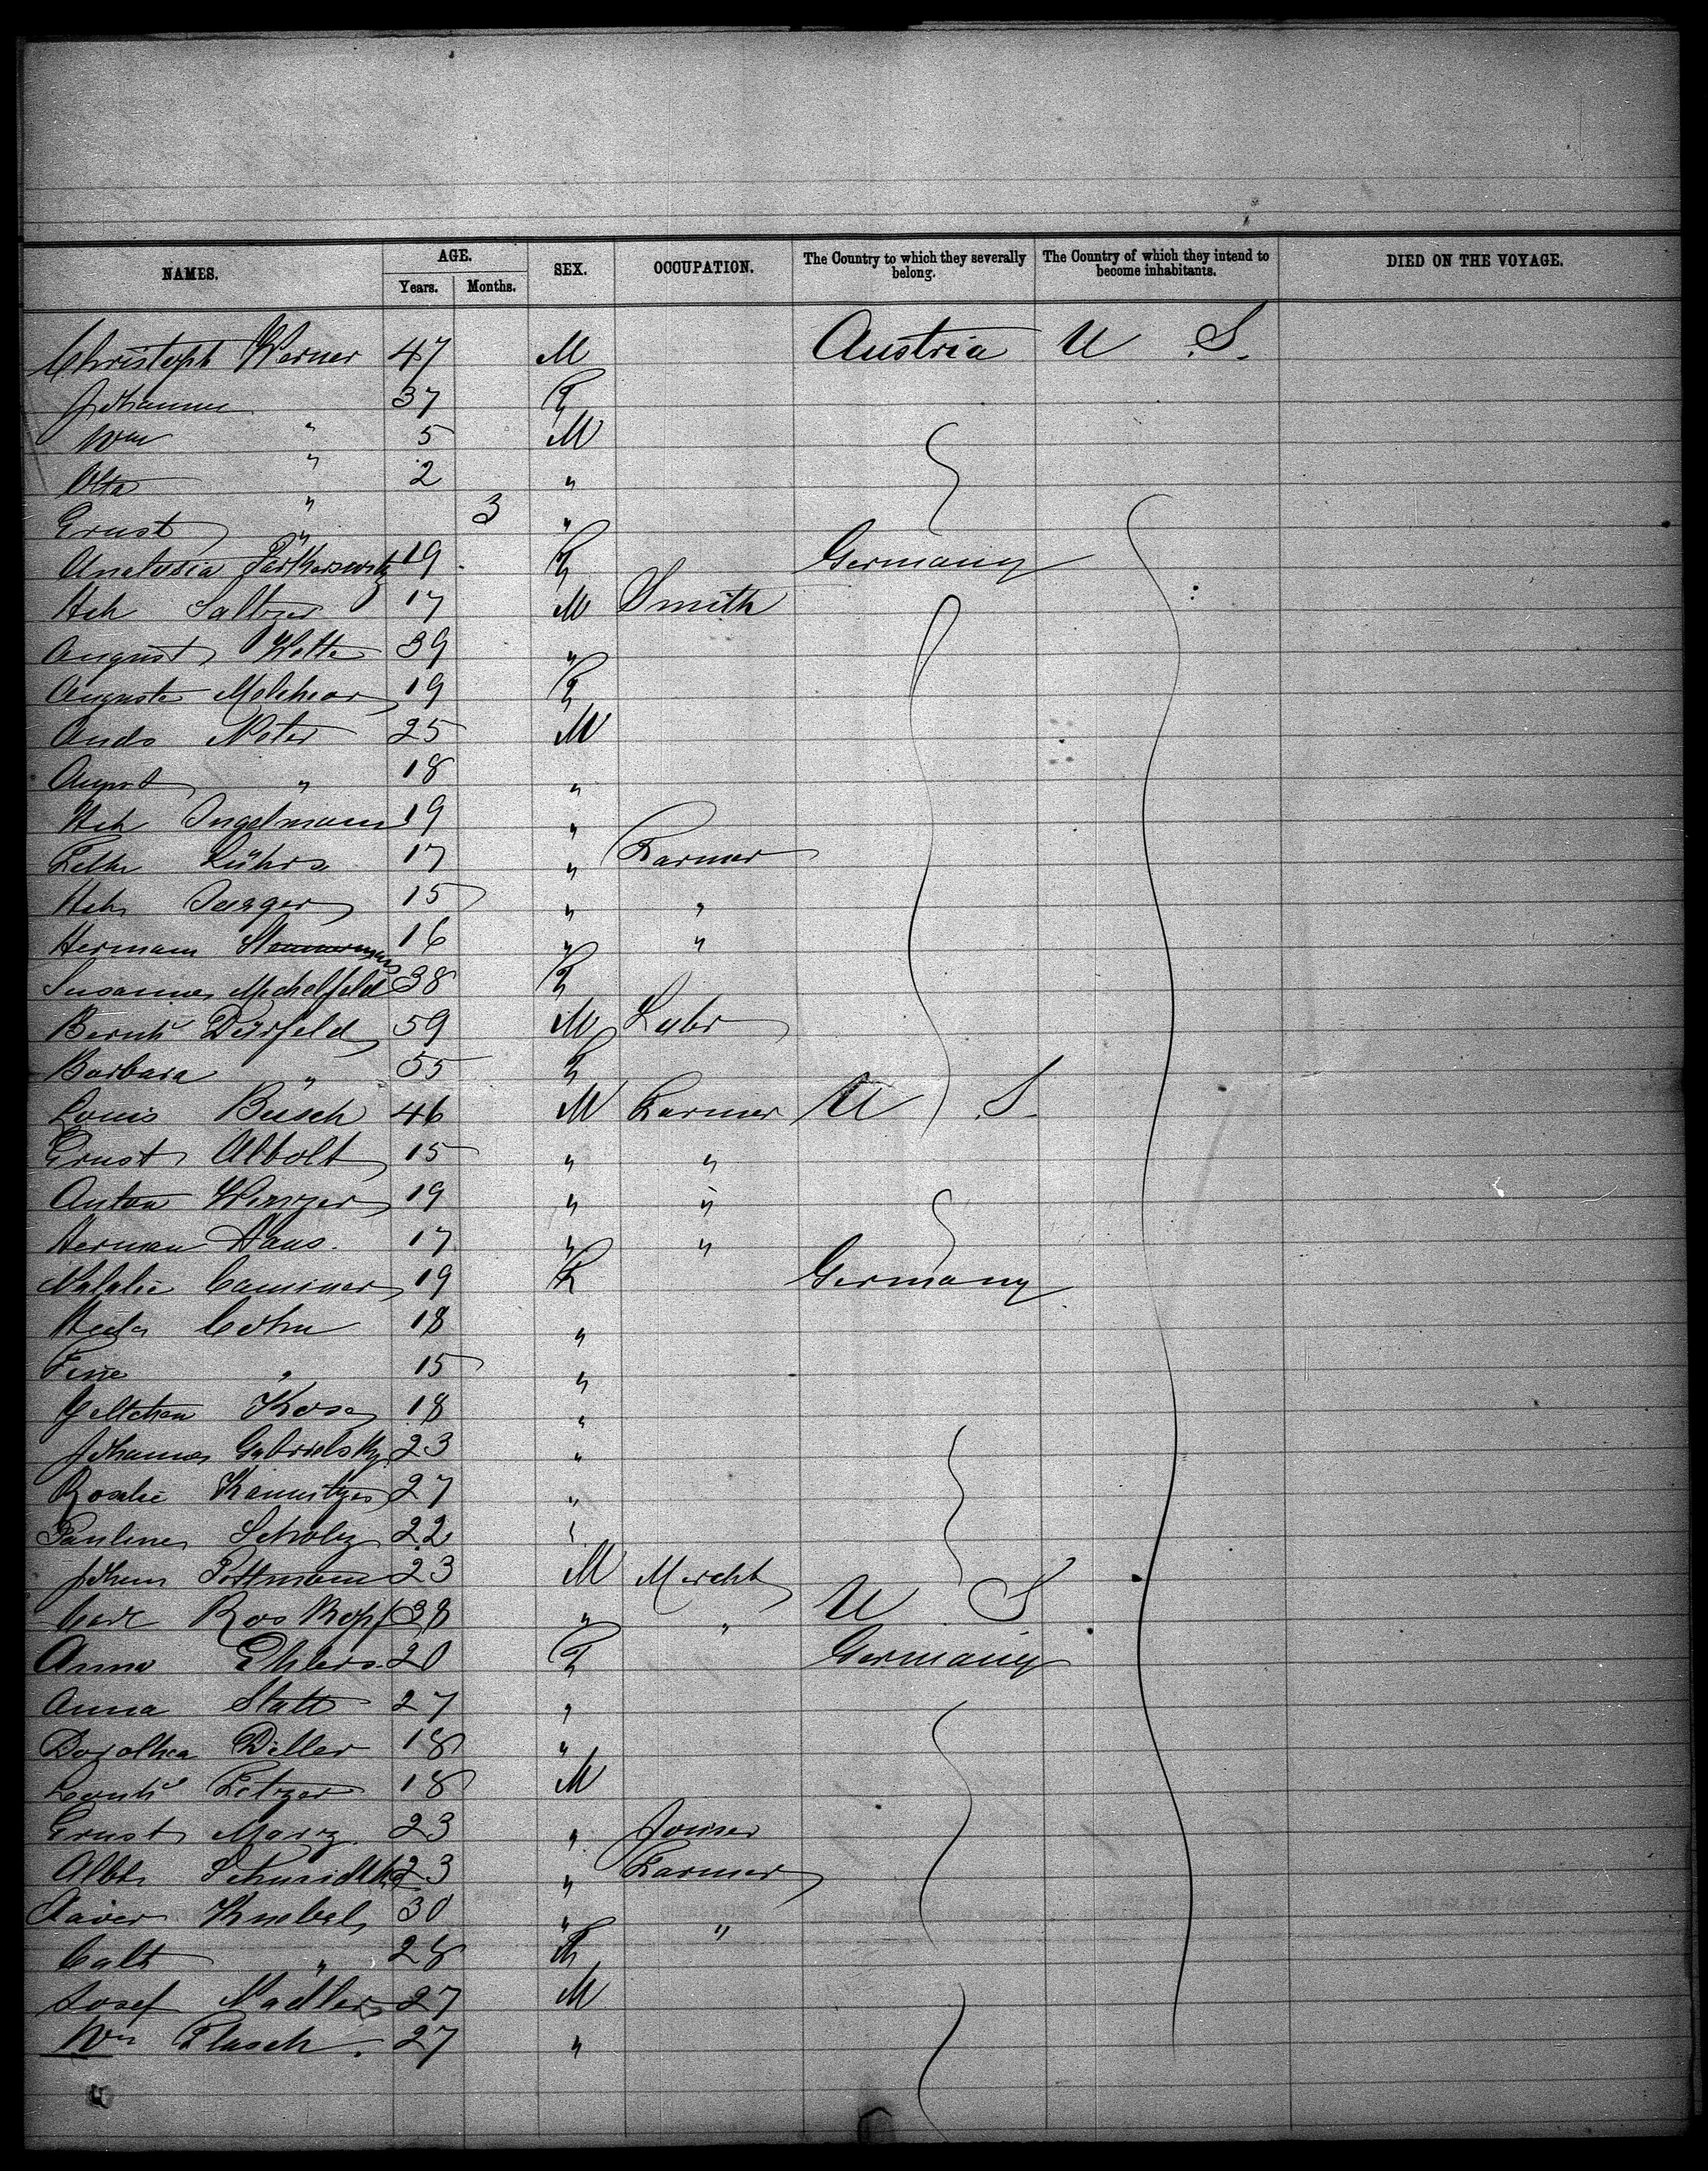 NAMES. AGE. Years. Months. SEX. OCCUPATION. The Country to which they severally belong. The Country of which they intend to become inhabitants. DIED ON THE VOYAGE.
Christoph Werner 47 M Austria U S.
Johanna " 37 F
Wm " 5 M
Otto " 2 "
Ernst " 3 "
19 F Germany
Hch Saltzer 17 M Smith
August Witte 39 "
Auguste Melchior 19 F
Andr Noter 25 M
August " 18 "
Hch Ingelmann 19 "
Lührs 17 " Farmer
Hch Jaeger 15 " "
Hermann 16 " "
Susanna Michelfeld 38 F
Bernh Dürfeld 59 M Labr
Barbara " 55 F
Louis Busch 46 M Farmer U S.
Ernst Albolt 15 " "
Anton Winzer 19 " "
Herman Haus. 17 " "
Natalie Caminer 19 F Germany
Cohn 18 "
Fine " 15 "
Jettchen Kosa 18 "
Johanna Gabrielsky 23 "
Rosalie 27 "
Pauline Scholz 22 "
Johann Pottmann 23 M Mercht
Carl Roskopf 38 " " U S
Anna Ehlers 20 F Germany
Anna Statt 27 "
Dorothea Diller 18 "
Leonh Fetzer 18 M
Ernst Marz. 23 " Joiner
Albt 23 " Farmer
Xaver Knebel 30 " "
Cath " 28 F
Josef Nadler 27 M
Wm Flasch. 27 "